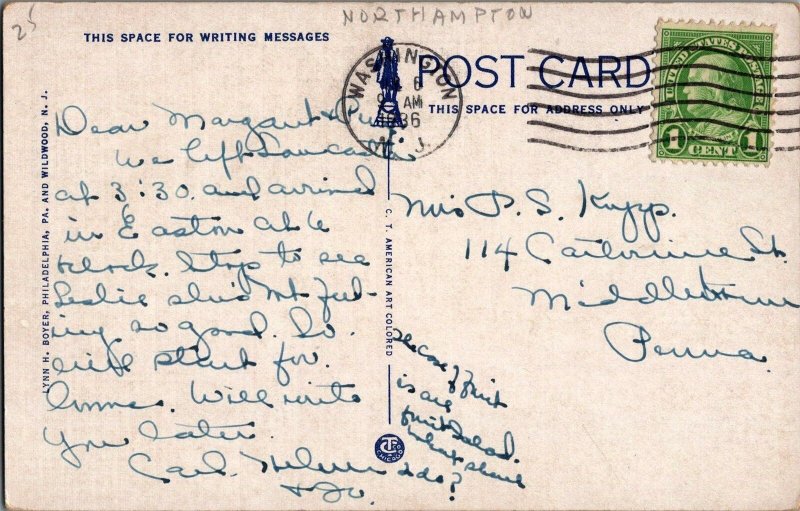 25
NORTHAMPTON
THIS SPACE FOR WRITING MESSAGES
POST CARD
THIS SPACE FOR ADDRESS ONLY
WASHINGTON
6
AM
1936
N. J.
UNITED STATES POSTAGE
1 CENT 1
LYNN H. BOYER, PHILADELPHIA, PA. AND WILDWOOD, N. J.
C. T. AMERICAN ART COLORED
Dear Margaret &
We left Lancaster
at 3:30. and arrived
in Easton at 6
o'clock. Stop to see
Leslie she's not feel-
ing so good. So
will start for
home. Will write
you later.
Carl. Helen
& Jo.
Mrs P. S. Kupp.
114 Catherine St.
Middletown
Penna.
The Case of fruit
is
fruit salad.
shall
I do?
CHICAGO